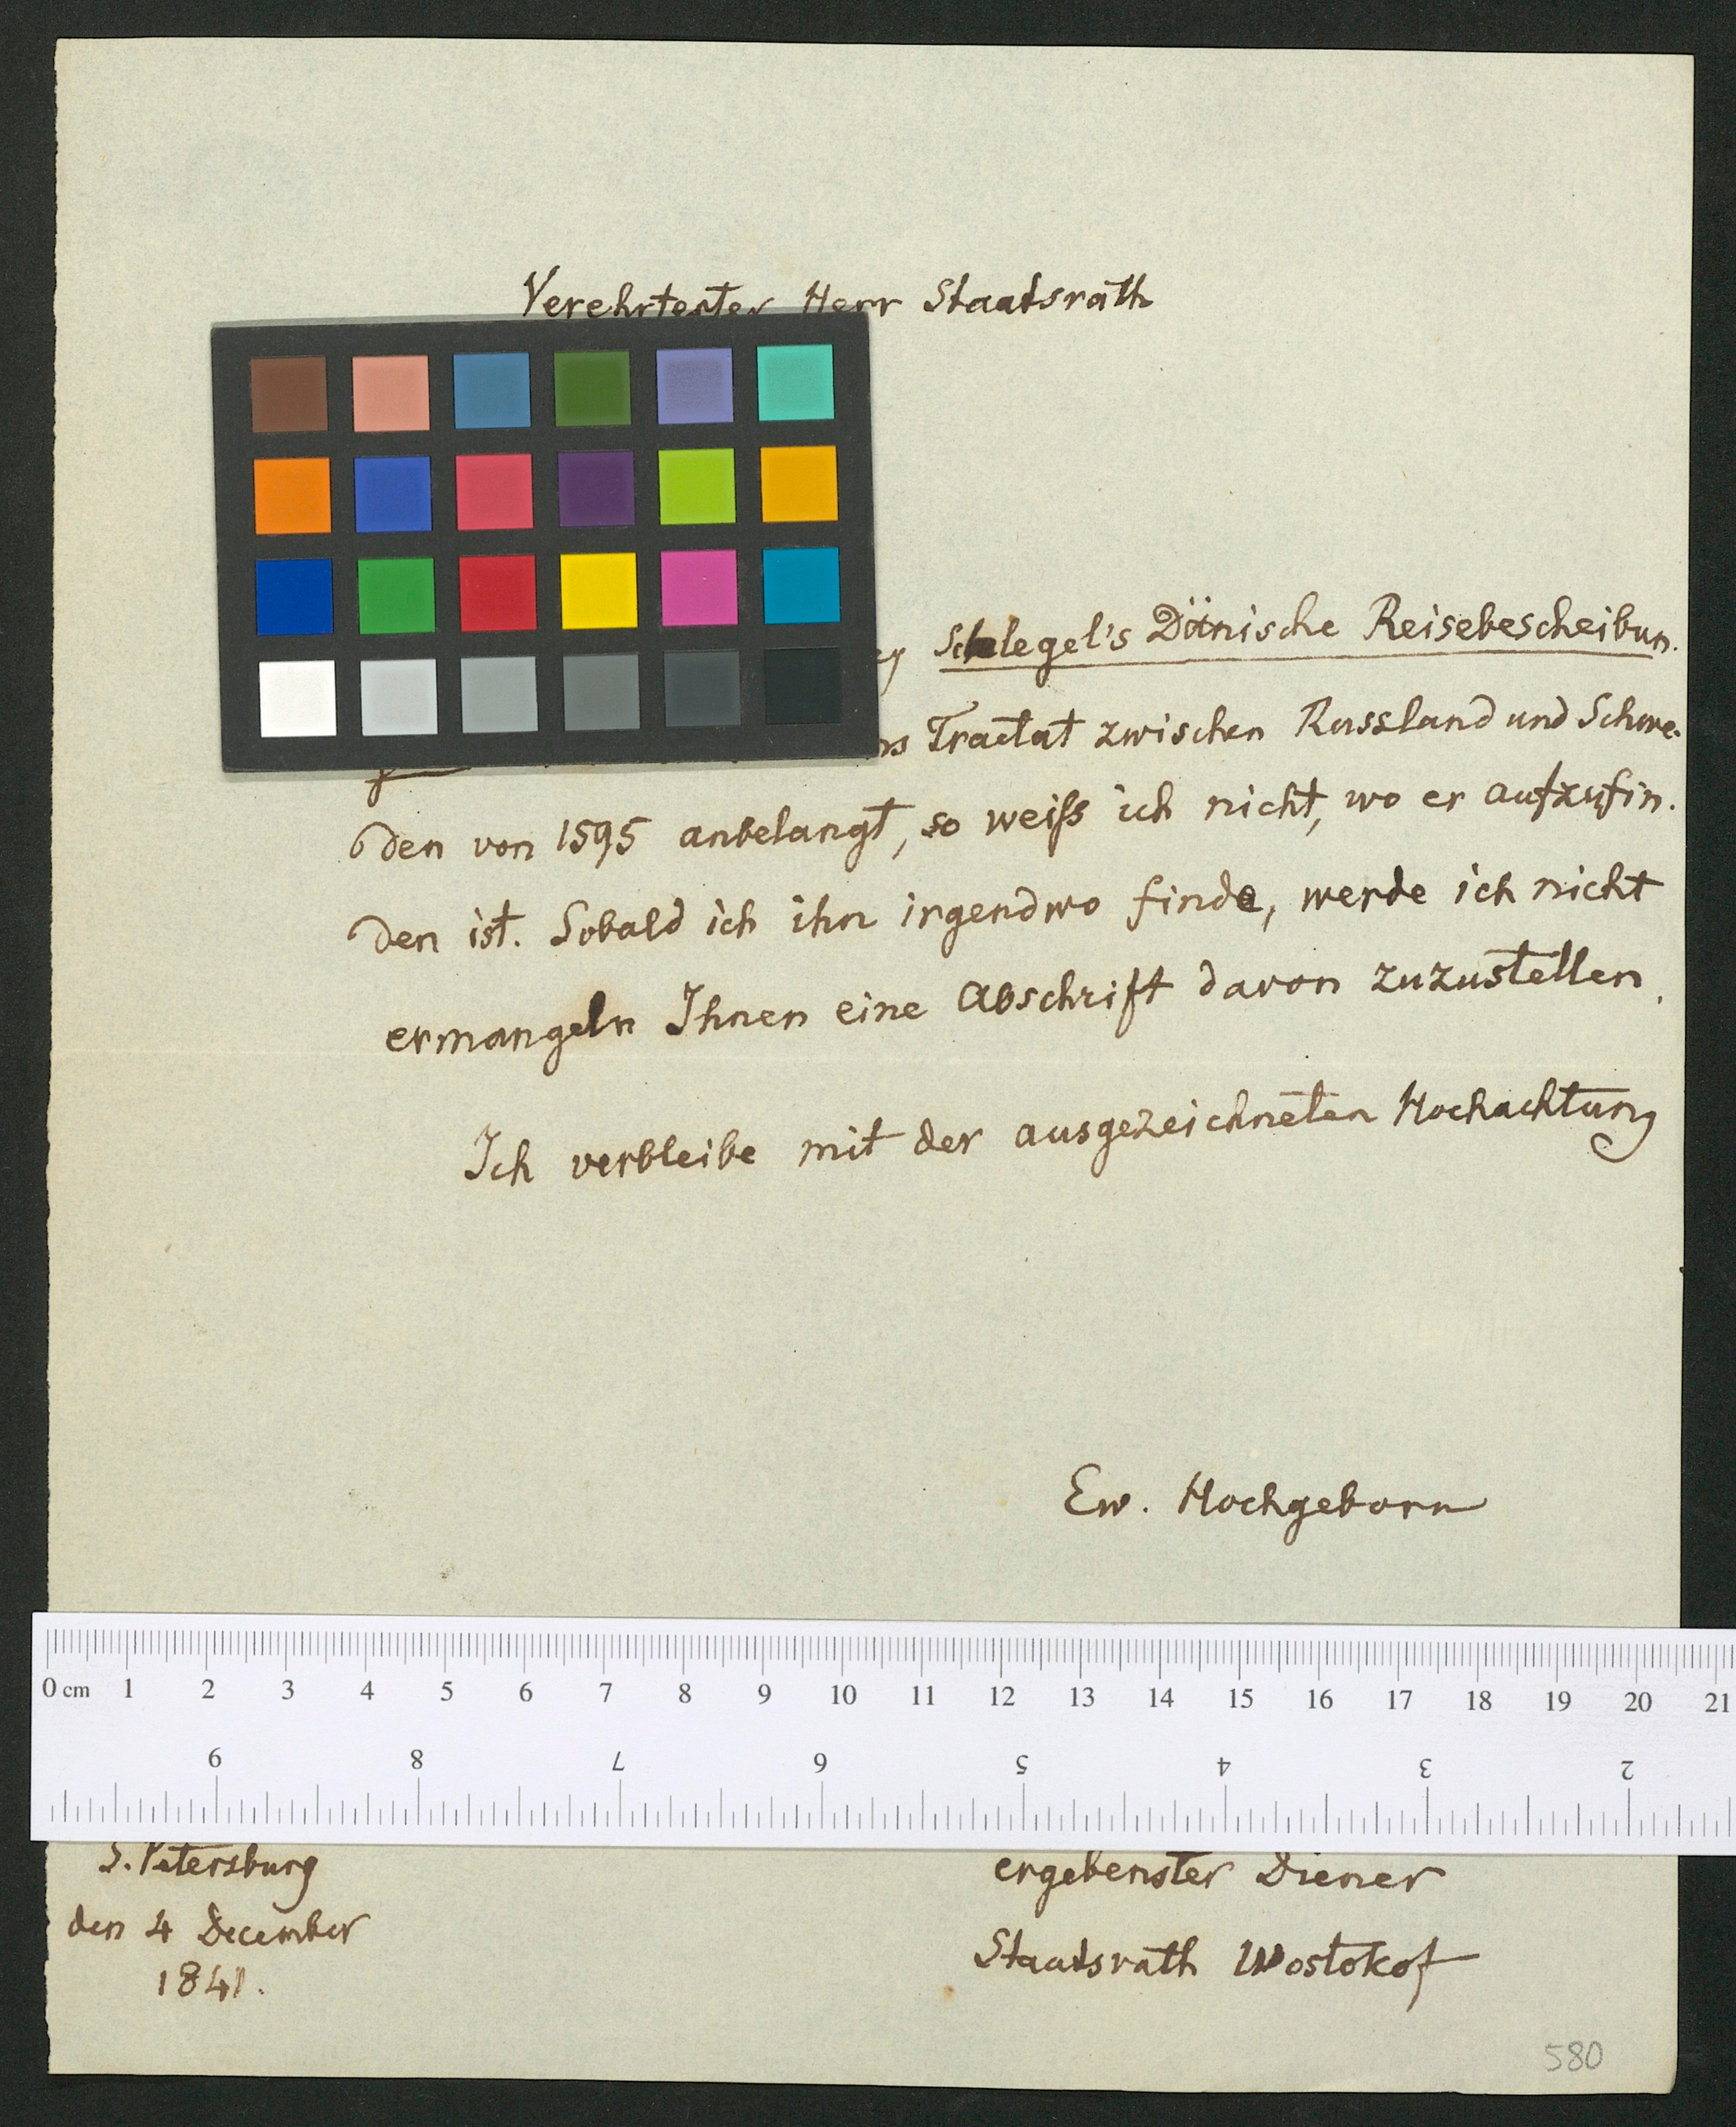 Verehrtester Herr Staatsrath
Schlegel's Dänische Reisebescheibun.
Tractat zwischen Russland und Schwe-
den von 1595 anbelangt, so weiß ich nicht, wo er aufzufin-
den ist. Sobald ich ihn irgendwo finde, werde ich nicht
ermangeln Ihnen eine Abschrift davon zuzustellen.
Ich verbleibe mit der ausgezeichneten Hochachtung
Ew. Hochgeborn
0 cm 1 2 3 4 5 6 7 8 9 10 11 12 13 14 15 16 17 18 19 20 21
9 8 7 6 5 4 3 2
S. Petersburg
den 4 December
1841.
ergebenster Diener
Staatsrath Wostokof
580